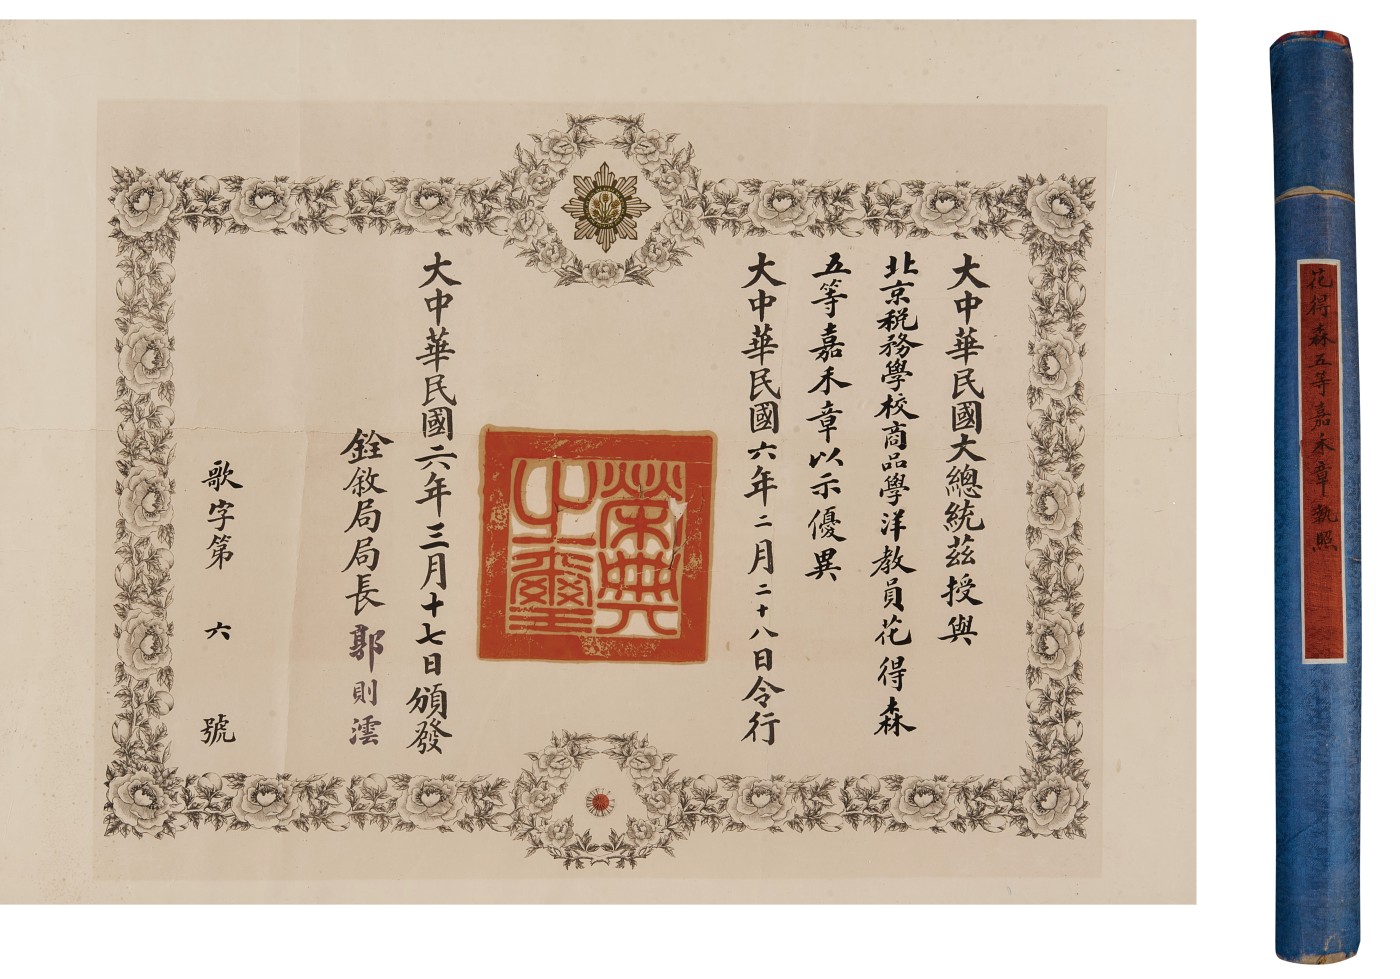 大中華民國大總統茲授與
北京税務學校商品學洋教員花得森
五等嘉禾章以示優異
大中華民國六年二月二十八日令行
榮典之璽
大中華民國六年三月十七日頒發
銓敘局局長郭則澐
歌字第六號
花得森五等嘉禾章執照